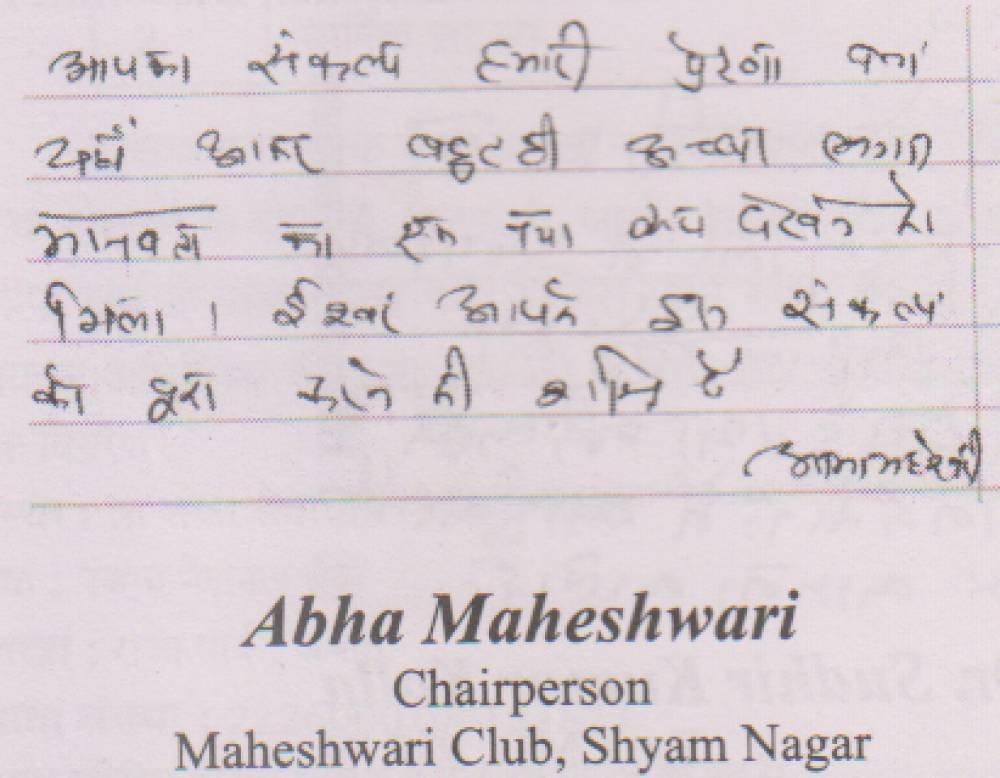 आपका संकल्प हमारी प्रेरणा बना
यहाँ आकर बहुत ही अच्छा लगा
मानवता का एक नया रूप देखने को
मिला । ईश्वर आपके इस संकल्प
को पूरा करने की शक्ति दे
आभा माहेश्वरी
Abha Maheshwari
Chairperson
Maheshwari Club, Shyam Nagar